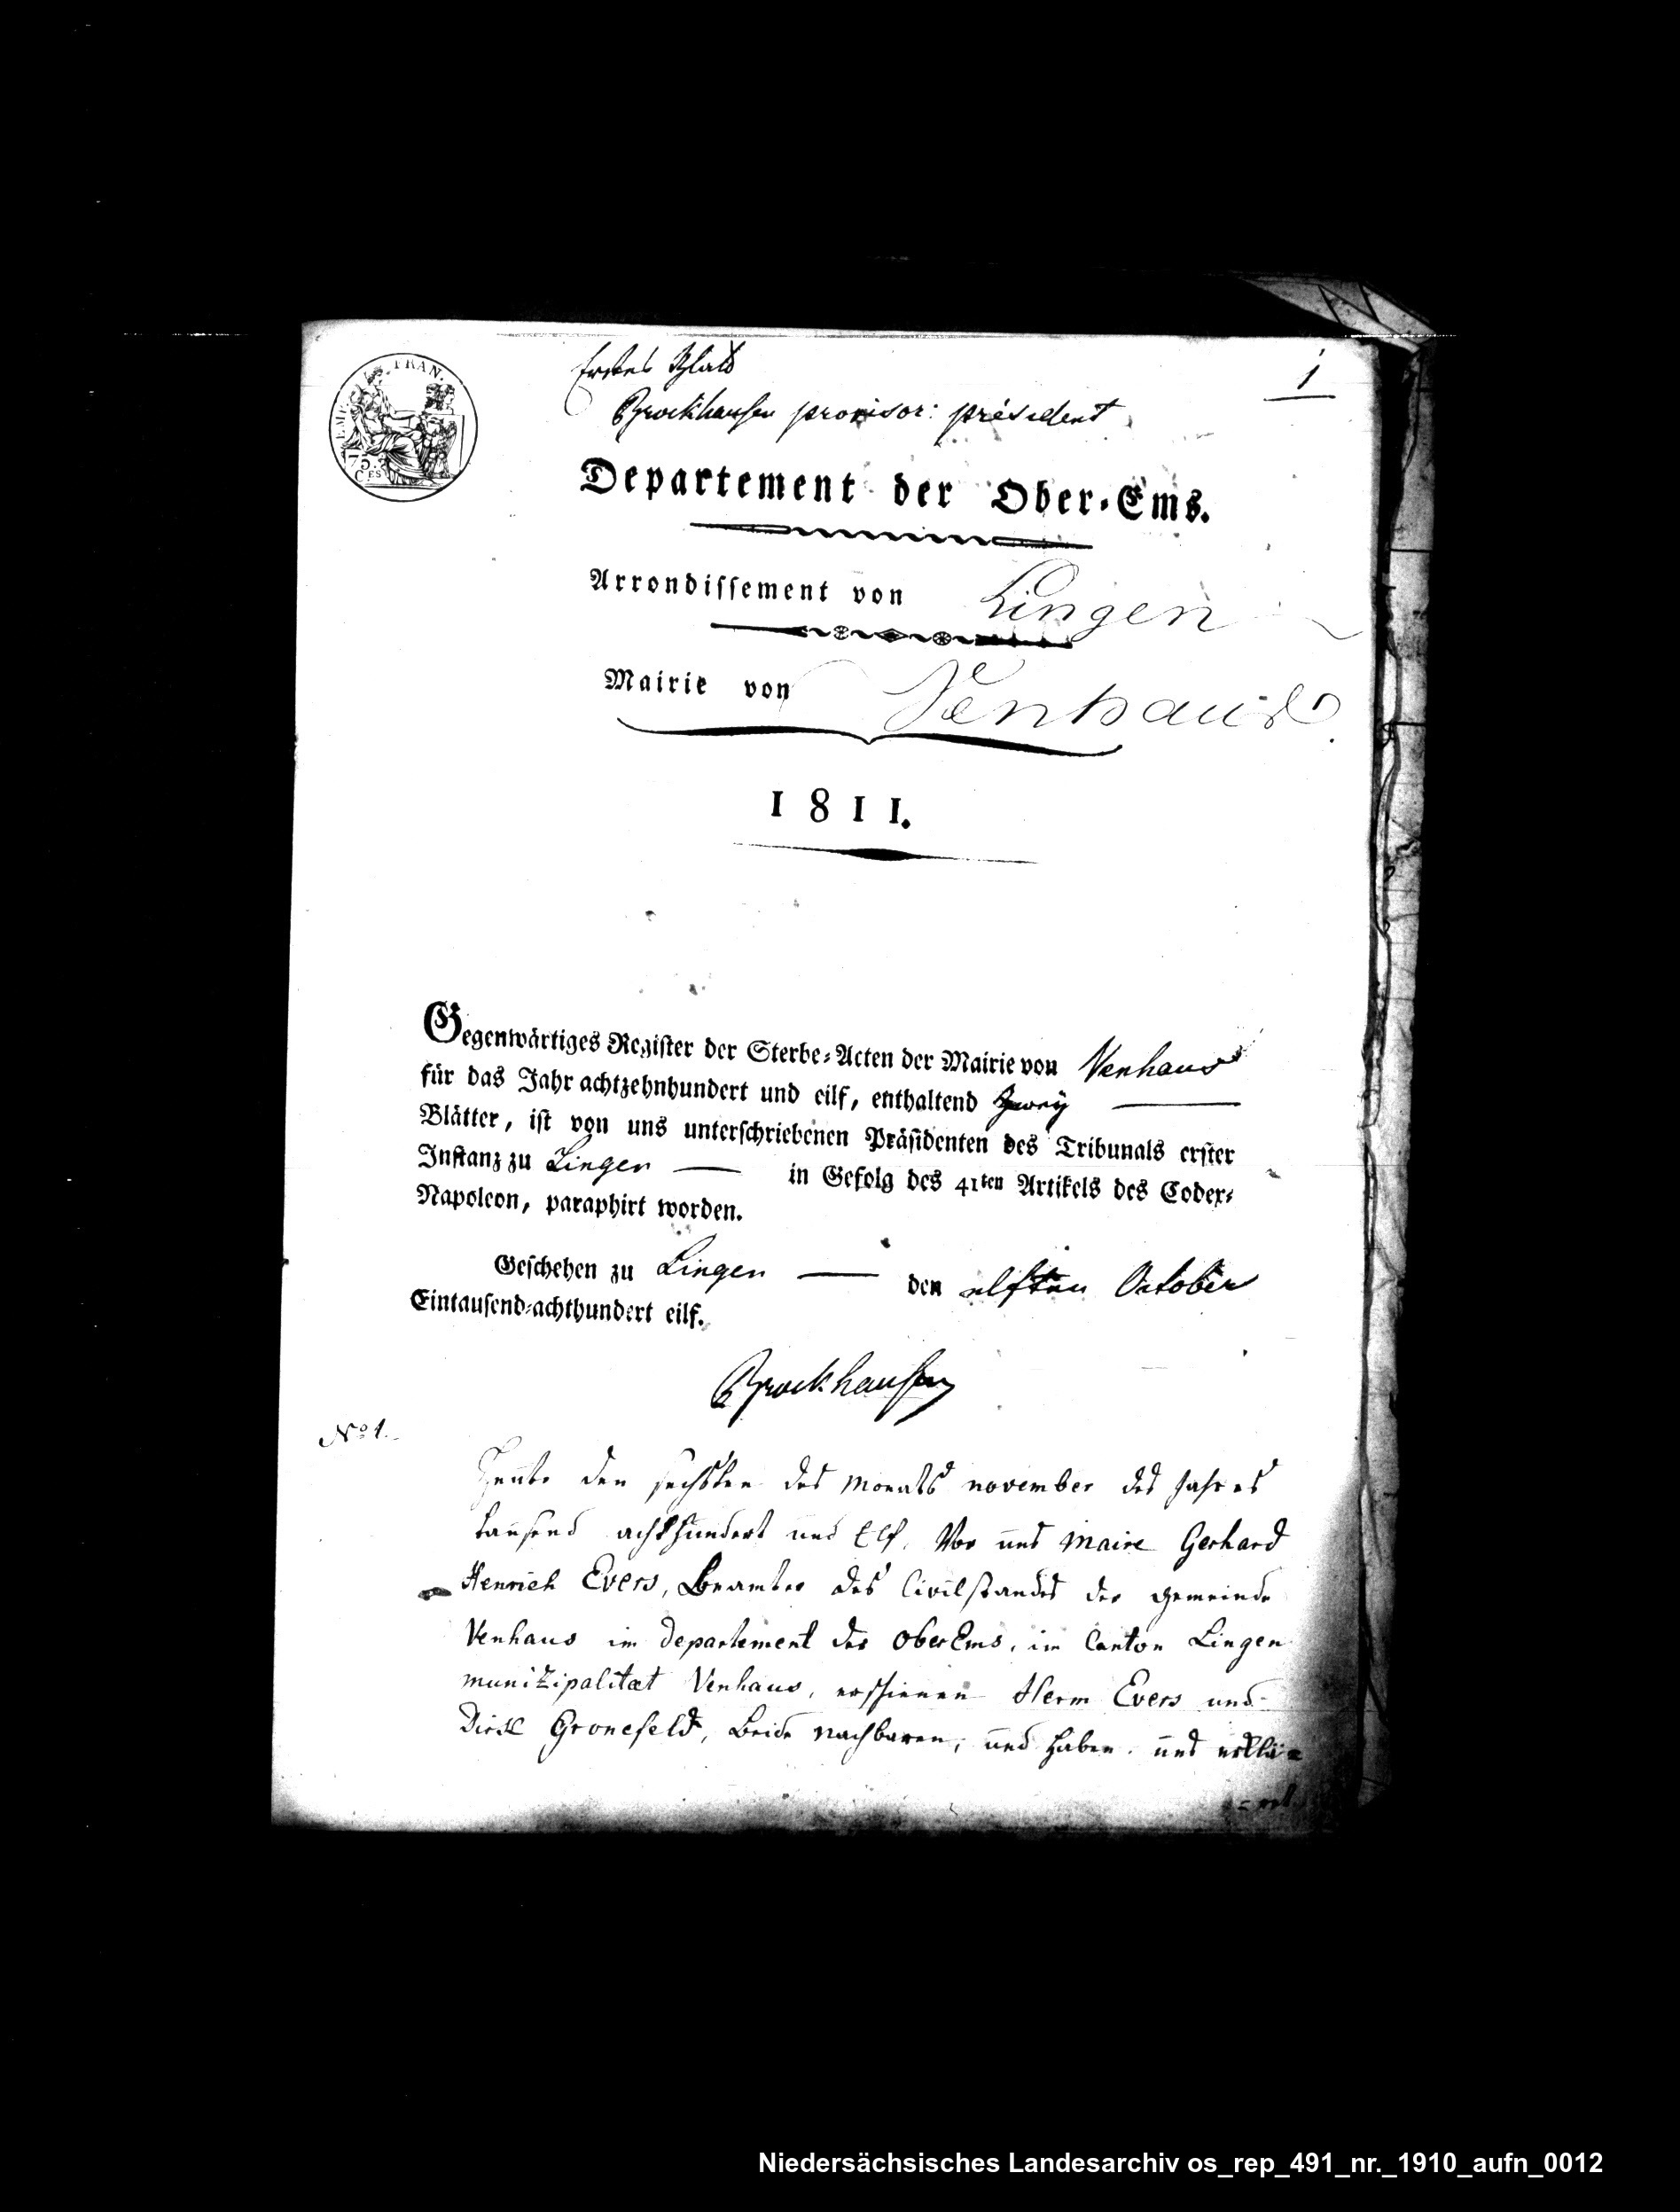 1
Erstes Blatt
Brockhausen provisor: président
EMP. FRAN.
75.
CES
Departement der Ober-Ems.
Arrondissement von Lingen
Mairie von Venhaus.
1811.
Gegenwärtiges Register der Sterbe-Acten der Mairie von Venhaus
für das Jahr achtzehnhundert und eilf, enthaltend Zwey
Blätter, ist von uns unterschriebenen Präsidenten des Tribunals erster
Instanz zu Lingen — in Gefolg des 41ten Artikels des Codex-
Napoleon, paraphirt worden.
Geschehen zu Lingen — den elften October
Eintausend-achthundert eilf.
Brockhausen
No 1.
Heute den sechsten des Monats november des Jahres
tausend achthundert und Elf, Vor uns Maire Gerhard
Henrich Evers, Beamter des Civilstandes der gemeinde
Venhaus im departement der OberEms, im Canton Lingen
munizipalitæt Venhaus, erschienen Herm Evers und
Dirck Gronefeld, Beide Nachbaren, und haben uns erklä=
Niedersächsisches Landesarchiv os_rep_491_nr._1910_aufn_0012